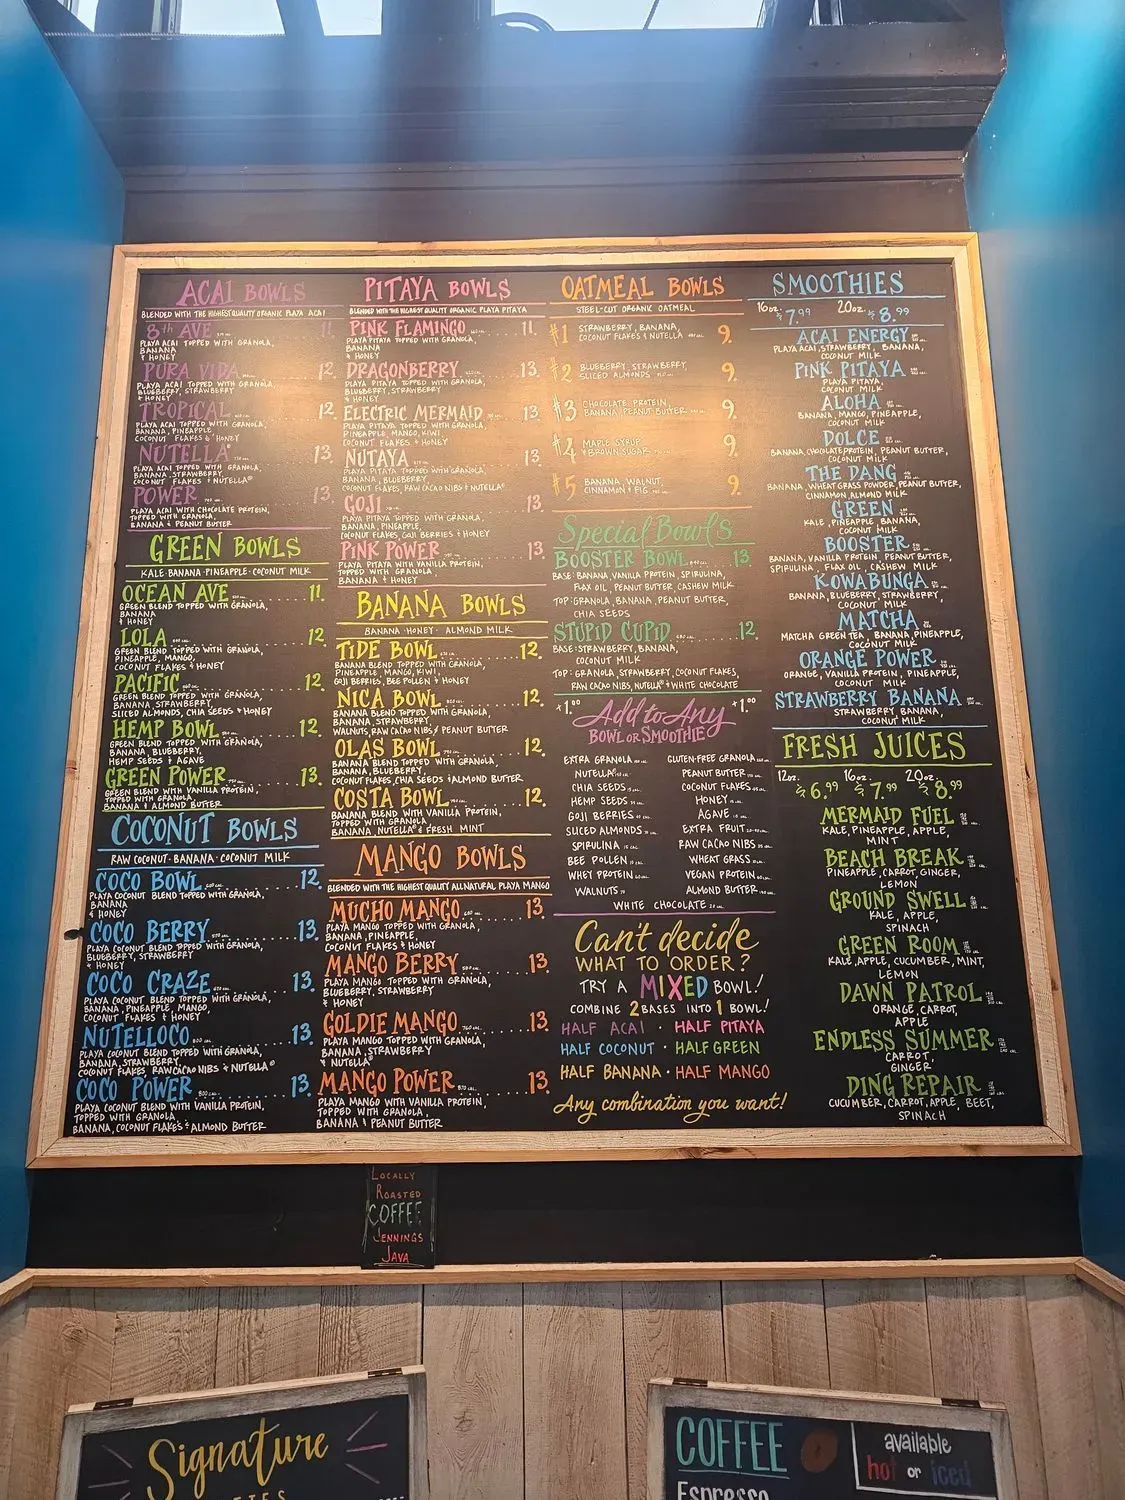 ACAI BOWLS
BLENDED WITH THE HIGHEST QUALITY ORGANIC PLAYA ACAI
8th AVE 11.
PLAYA ACAI TOPPED WITH GRANOLA,
BANANA
& HONEY
PURA VIDA 12.
PLAYA ACAI TOPPED WITH GRANOLA,
BLUEBERRY, STRAWBERRY
& HONEY
TROPICAL 12.
PLAYA ACAI TOPPED WITH GRANOLA,
BANANA, PINEAPPLE,
COCONUT FLAKES & HONEY
NUTELLA® 13.
PLAYA ACAI TOPPED WITH GRANOLA,
BANANA, STRAWBERRY,
COCONUT FLAKES & NUTELLA®
POWER 13.
PLAYA ACAI WITH CHOCOLATE PROTEIN,
TOPPED WITH GRANOLA,
BANANA & PEANUT BUTTER
GREEN BOWLS
KALE·BANANA·PINEAPPLE·COCONUT MILK
OCEAN AVE 11.
GREEN BLEND TOPPED WITH GRANOLA,
BANANA
& HONEY
LOLA 12.
GREEN BLEND TOPPED WITH GRANOLA,
PINEAPPLE, MANGO,
COCONUT FLAKES & HONEY
PACIFIC 12.
GREEN BLEND TOPPED WITH GRANOLA,
BANANA, STRAWBERRY,
SLICED ALMONDS, CHIA SEEDS & HONEY
HEMP BOWL 12.
GREEN BLEND TOPPED WITH GRANOLA,
BANANA, BLUEBERRY,
HEMP SEEDS & AGAVE
GREEN POWER 13.
GREEN BLEND WITH VANILLA PROTEIN,
TOPPED WITH GRANOLA,
BANANA & ALMOND BUTTER
COCONUT BOWLS
RAW COCONUT·BANANA·COCONUT MILK
COCO BOWL 12.
PLAYA COCONUT BLEND TOPPED WITH GRANOLA,
BANANA
& HONEY
COCO BERRY 13.
PLAYA COCONUT BLEND TOPPED WITH GRANOLA,
BLUEBERRY, STRAWBERRY
& HONEY
COCO CRAZE 13.
PLAYA COCONUT BLEND TOPPED WITH GRANOLA,
BANANA, PINEAPPLE, MANGO,
COCONUT FLAKES & HONEY
NUTELLOCO 13.
PLAYA COCONUT BLEND TOPPED WITH GRANOLA,
BANANA, STRAWBERRY,
COCONUT FLAKES, RAW CACAO NIBS & NUTELLA®
COCO POWER 13.
PLAYA COCONUT BLEND WITH VANILLA PROTEIN,
TOPPED WITH GRANOLA,
BANANA, COCONUT FLAKES & ALMOND BUTTER
PITAYA BOWLS
BLENDED WITH THE HIGHEST QUALITY ORGANIC PLAYA PITAYA
PINK FLAMINGO 11.
PLAYA PITAYA TOPPED WITH GRANOLA,
BANANA
& HONEY
DRAGONBERRY 13.
PLAYA PITAYA TOPPED WITH GRANOLA,
BLUEBERRY, STRAWBERRY
& HONEY
ELECTRIC MERMAID 13.
PLAYA PITAYA TOPPED WITH GRANOLA,
PINEAPPLE, MANGO, KIWI,
COCONUT FLAKES & HONEY
NUTAYA 13.
PLAYA PITAYA TOPPED WITH GRANOLA,
BANANA, BLUEBERRY,
COCONUT FLAKES, RAW CACAO NIBS & NUTELLA®
GOJI 13.
PLAYA PITAYA TOPPED WITH GRANOLA,
BANANA, PINEAPPLE,
COCONUT FLAKES, GOJI BERRIES & HONEY
PINK POWER 13.
PLAYA PITAYA WITH VANILLA PROTEIN,
TOPPED WITH GRANOLA,
BANANA & HONEY
BANANA BOWLS
BANANA·HONEY·ALMOND MILK
TIDE BOWL 12.
BANANA BLEND TOPPED WITH GRANOLA,
PINEAPPLE, MANGO, KIWI,
GOJI BERRIES, BEE POLLEN & HONEY
NICA BOWL 12.
BANANA BLEND TOPPED WITH GRANOLA,
BANANA, STRAWBERRY,
WALNUTS, RAW CACAO NIBS & PEANUT BUTTER
OLAS BOWL 12.
BANANA BLEND TOPPED WITH GRANOLA,
BANANA, BLUEBERRY,
COCONUT FLAKES, CHIA SEEDS & ALMOND BUTTER
COSTA BOWL 12.
BANANA BLEND WITH VANILLA PROTEIN,
TOPPED WITH GRANOLA,
BANANA, NUTELLA® & FRESH MINT
MANGO BOWLS
BLENDED WITH THE HIGHEST QUALITY ALL NATURAL PLAYA MANGO
MUCHO MANGO 13.
PLAYA MANGO TOPPED WITH GRANOLA,
BANANA, PINEAPPLE,
COCONUT FLAKES & HONEY
MANGO BERRY 13.
PLAYA MANGO TOPPED WITH GRANOLA,
BLUEBERRY, STRAWBERRY
& HONEY
GOLDIE MANGO 13.
PLAYA MANGO TOPPED WITH GRANOLA,
BANANA, STRAWBERRY
& NUTELLA®
MANGO POWER 13.
PLAYA MANGO WITH VANILLA PROTEIN,
TOPPED WITH GRANOLA,
BANANA & PEANUT BUTTER
OATMEAL BOWLS
STEEL-CUT ORGANIC OATMEAL
#1 STRAWBERRY, BANANA, 9.
COCONUT FLAKES & NUTELLA
#2 BLUEBERRY, STRAWBERRY, 9.
SLICED ALMONDS
#3 CHOCOLATE PROTEIN, 9.
BANANA, PEANUT BUTTER
#4 MAPLE SYRUP 9.
& BROWN SUGAR
#5 BANANA, WALNUT, 9.
CINNAMON & FIG
Special Bowls
BOOSTER BOWL 13.
BASE: BANANA, VANILLA PROTEIN, SPIRULINA,
FLAX OIL, PEANUT BUTTER, CASHEW MILK
TOP: GRANOLA, BANANA, PEANUT BUTTER,
CHIA SEEDS
STUPID CUPID 12.
BASE: STRAWBERRY, BANANA,
COCONUT MILK
TOP: GRANOLA, STRAWBERRY, COCONUT FLAKES,
RAW CACAO NIBS, NUTELLA® & WHITE CHOCOLATE
+1.00 Add to Any +1.00
BOWL OR SMOOTHIE
EXTRA GRANOLA GLUTEN-FREE GRANOLA
NUTELLA® PEANUT BUTTER
CHIA SEEDS COCONUT FLAKES
HEMP SEEDS HONEY
GOJI BERRIES AGAVE
SLICED ALMONDS EXTRA FRUIT
SPIRULINA RAW CACAO NIBS
BEE POLLEN WHEAT GRASS
WHEY PROTEIN VEGAN PROTEIN
WALNUTS ALMOND BUTTER
WHITE CHOCOLATE
Can't decide
WHAT TO ORDER?
TRY A MIXED BOWL!
COMBINE 2 BASES INTO 1 BOWL!
HALF ACAI · HALF PITAYA
HALF COCONUT · HALF GREEN
HALF BANANA · HALF MANGO
Any combination you want!
SMOOTHIES
16oz. $7.99 20oz. $8.99
ACAI ENERGY
PLAYA ACAI, STRAWBERRY, BANANA,
COCONUT MILK
PINK PITAYA
PLAYA PITAYA,
COCONUT MILK
ALOHA
BANANA, MANGO, PINEAPPLE,
COCONUT MILK
DOLCE
BANANA, CHOCOLATE PROTEIN, PEANUT BUTTER,
COCONUT MILK
THE DANG
BANANA, WHEAT GRASS POWDER, PEANUT BUTTER,
CINNAMON, ALMOND MILK
GREEN
KALE, PINEAPPLE, BANANA,
COCONUT MILK
BOOSTER
BANANA, VANILLA PROTEIN, PEANUT BUTTER,
SPIRULINA, FLAX OIL, CASHEW MILK
KOWABUNGA
BANANA, BLUEBERRY, STRAWBERRY,
COCONUT MILK
MATCHA
MATCHA GREEN TEA, BANANA, PINEAPPLE,
COCONUT MILK
ORANGE POWER
ORANGE, VANILLA PROTEIN, PINEAPPLE,
COCONUT MILK
STRAWBERRY BANANA
STRAWBERRY, BANANA,
COCONUT MILK
FRESH JUICES
12oz. $6.99 16oz. $7.99 20oz. $8.99
MERMAID FUEL
KALE, PINEAPPLE, APPLE,
MINT
BEACH BREAK
PINEAPPLE, CARROT, GINGER,
LEMON
GROUND SWELL
KALE, APPLE,
SPINACH
GREEN ROOM
KALE, APPLE, CUCUMBER, MINT,
LEMON
DAWN PATROL
ORANGE, CARROT,
APPLE
ENDLESS SUMMER
CARROT,
GINGER
DING REPAIR
CUCUMBER, CARROT, APPLE, BEET,
SPINACH
LOCALLY
ROASTED
COFFEE
JENNINGS
JAVA
Signature
COFFEE
available
hot or iced
Espresso